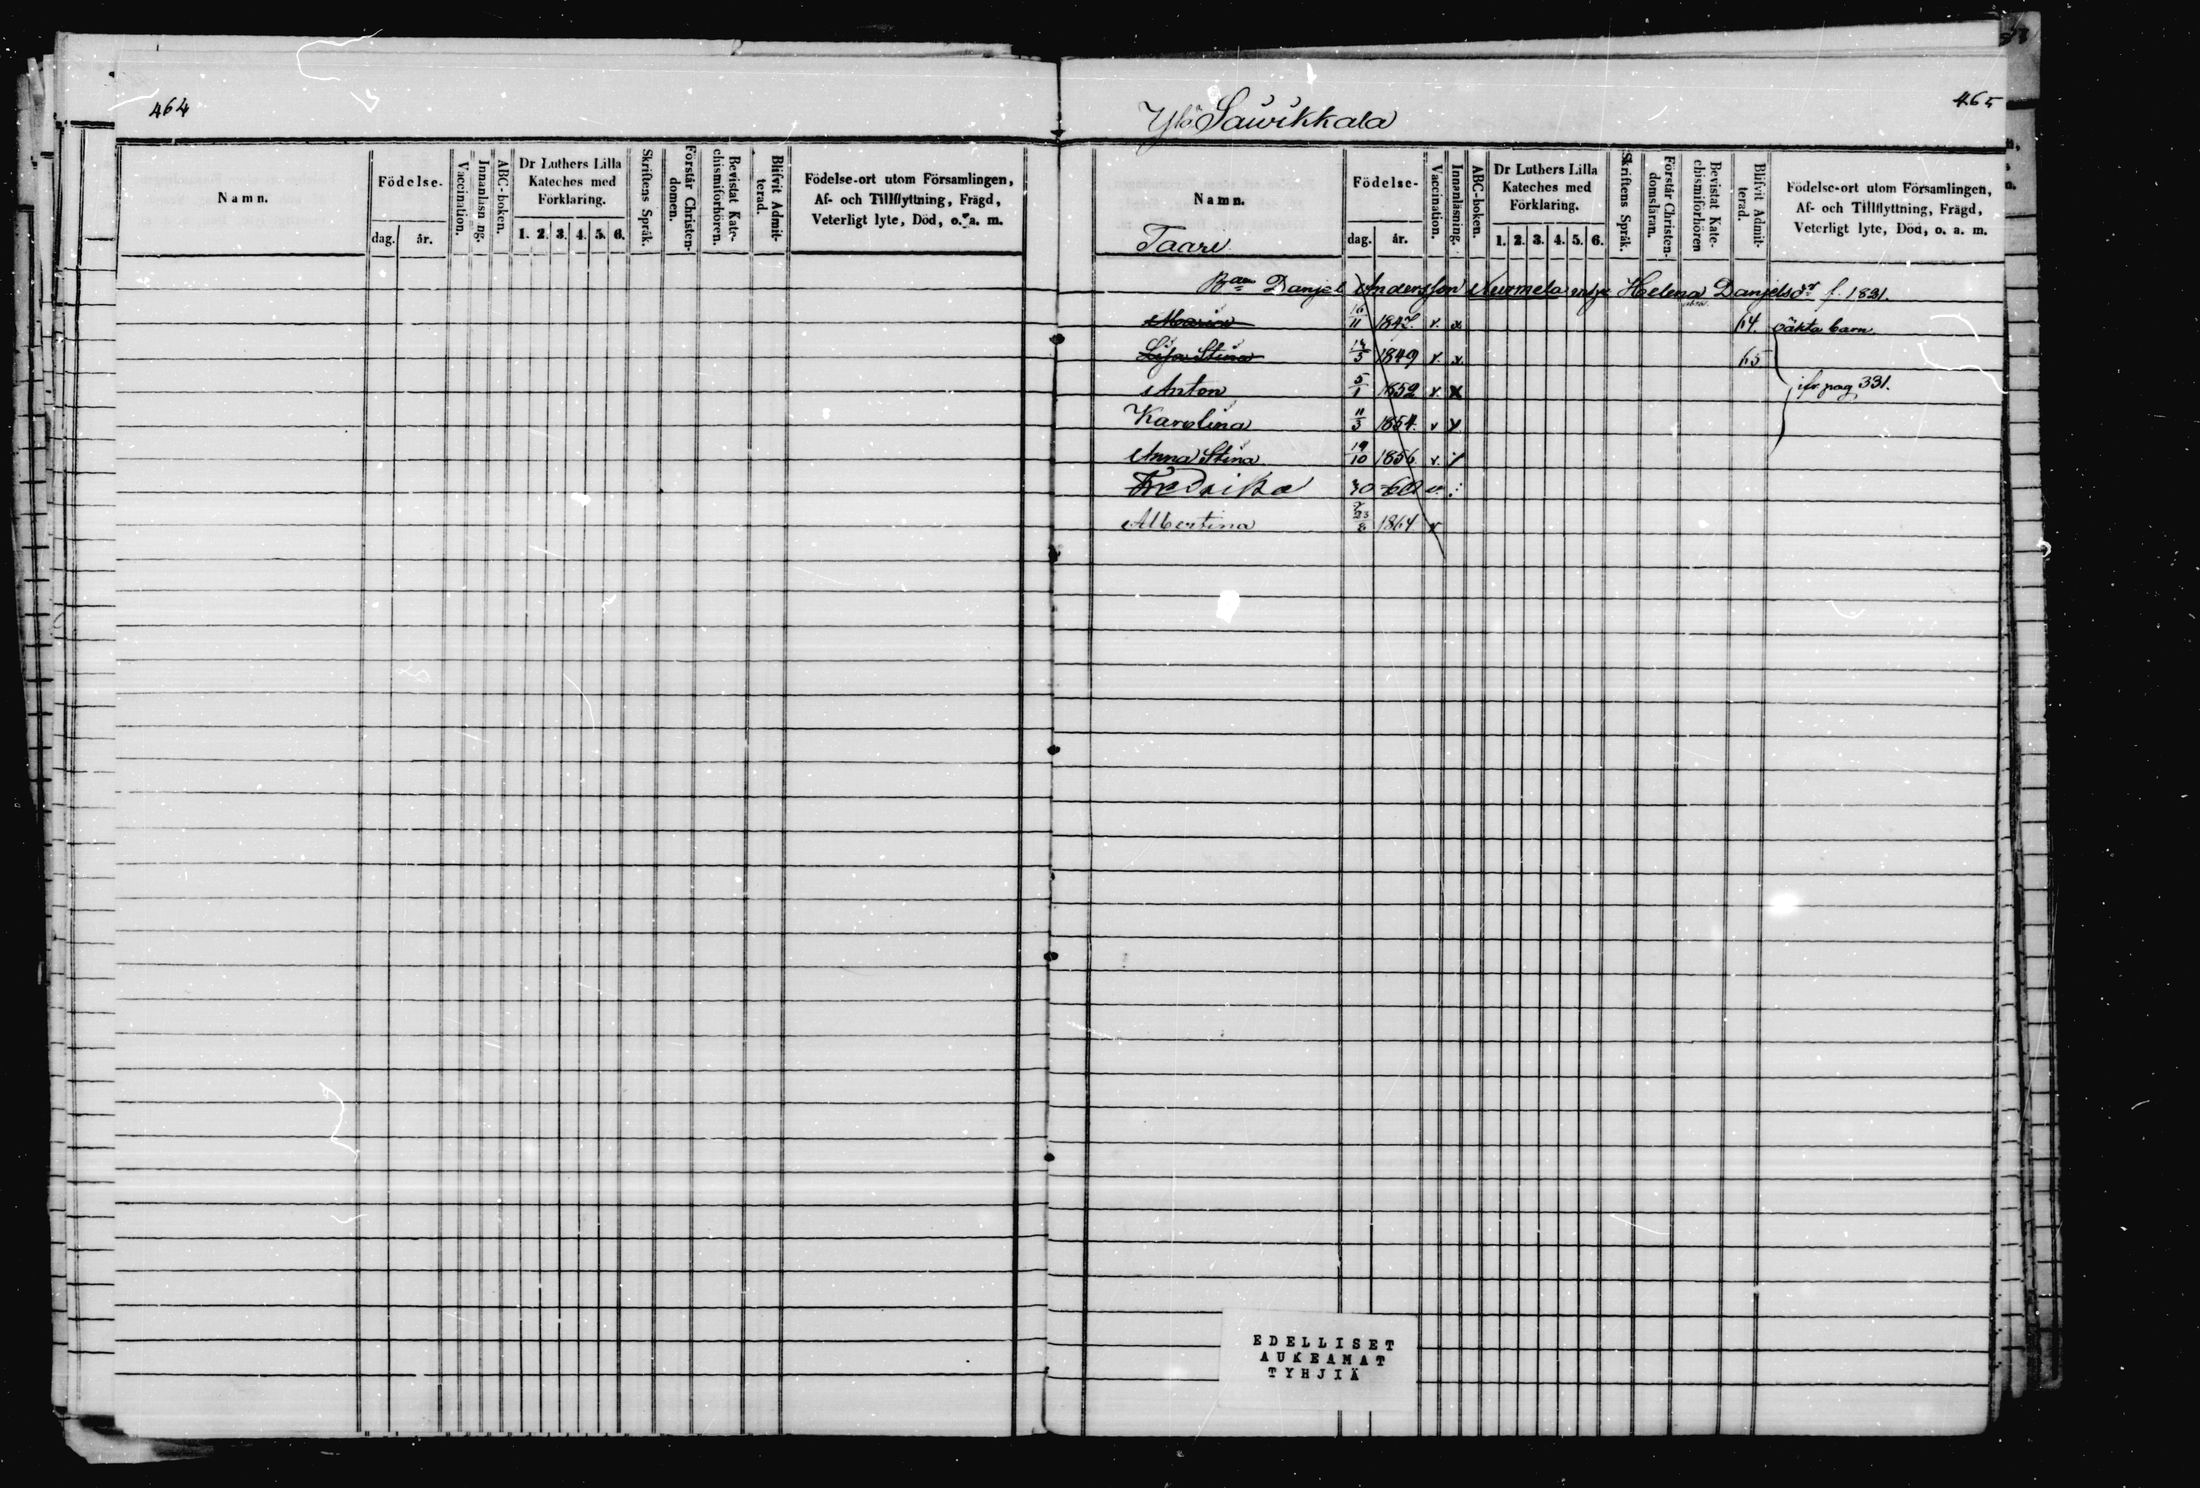 464
Namn.
Födelse-
dag. år.
Vaccination.
Innanläsning.
ABC-boken.
Dr Luthers Lilla
Kateches med
Förklaring.
1. 2. 3. 4. 5. 6.
Skriftens Språk.
Förstår Christen-
domen.
Bevistat Kate-
chismiförhören.
Blifvit Admit-
terad.
Födelse-ort utom Församlingen,
Af- och Tillflyttning, Frägd,
Veterligt lyte, Död, o. a. m.
465
Ylö Sawikkala
Namn.
Taare
Födelse-
dag. år.
Vaccination.
Innanläsning.
ABC-boken.
Dr Luthers Lilla
Kateches med
Förklaring.
1. 2. 3. 4. 5. 6.
Skriftens Språk.
Förstår Christen-
domsläran.
Bevistat Kate-
chismiförhören
Blifvit Admit-
terad.
Födelse-ort utom Församlingen,
Af- och Tillflyttning, Frägd,
Veterligt lyte, Död, o. a. m.
Danjel Andersson Nurmela Helena Danjelsdr f. 1821.
Maria 16/11 1847. v. x 64. oäkta barn
Lisa Stina 1849 v. x 65
Anton 5/1 1852 v. x ifr pag 331.
Karolina 11/3 1854. v x
Anna Stina 19/10 1856 v.
Fredrika 30/7 60 v.
Albertina 23/8 1864 v
EDELLISET
AUKEAMAT
TYHJIÄ